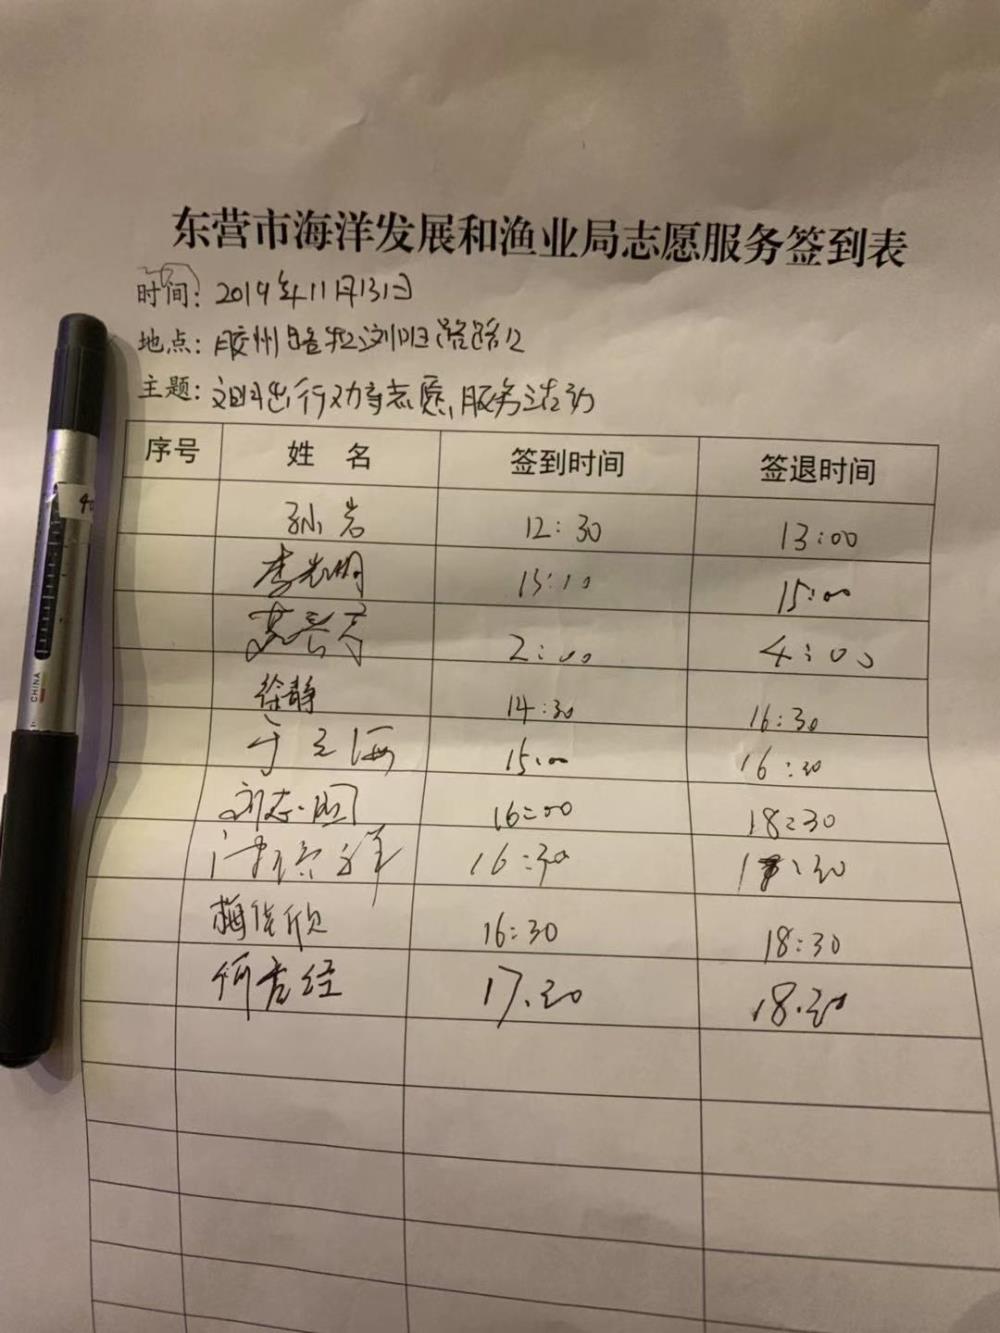 东营市海洋发展和渔业局志愿服务签到表
时间: 2019年11月13日
地点: 胶州路和浏阳路路口
主题: 文明出行劝导志愿服务活动
序号 姓名 签到时间 签退时间
孙岩 12:30 13:00
李光明 13:10 15:00
2:00 4:00
徐静 14:30 16:30
于立海 15:00 16:30
刘志国 16:00 18:30
16:30
梅俊欣 16:30 18:30
何春经 17.30 18.30
CHINA